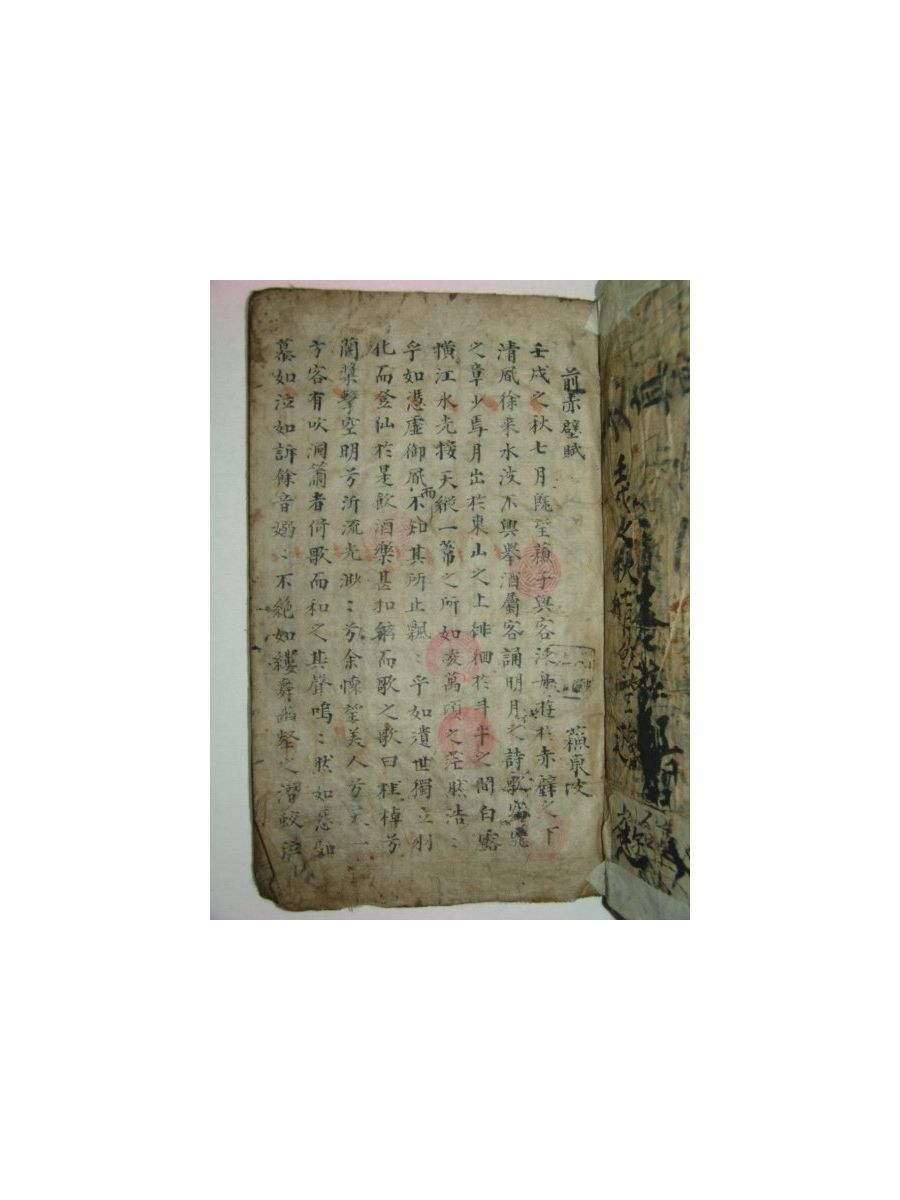 前赤壁賦 蘓東坡
壬戌之秋七月旣望蘓子與客泛舟遊於赤壁之下
清風徐來水波不興擧酒屬客誦明月之詩歌窈窕
之章少焉月出於東山之上徘徊於斗牛之間白露
橫江水光接天縱一葦之所如凌萬頃之茫然浩〻
乎如憑虛御風而不知其所止飄〻乎如遺世獨立羽
化而登仙於是飮酒樂甚扣舷而歌之歌曰桂棹兮
蘭槳擊空明兮泝流光渺〻兮余懷望美人兮天一
方客有吹洞簫者倚歌而和之其聲嗚〻然如怨如
慕如泣如訴餘音嫋〻不絶如縷舞幽壑之潛蛟泣
壬戌之秋